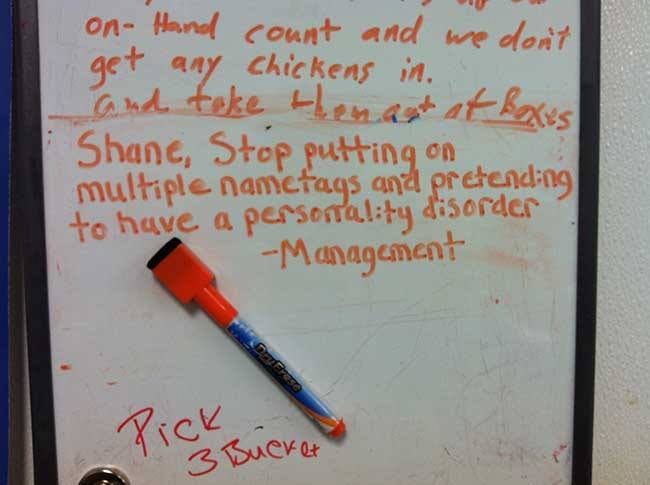 on-Hand count and we don't
get any chickens in.
and take them out of Boxes
Shane, Stop putting on
multiple nametags and pretending
to have a personality disorder
-Management
Dry Erase
Pick
3 Bucket